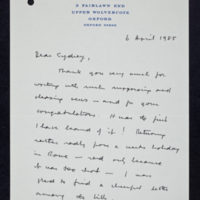 5 FAIRLAWN END
UPPER WOLVERCOTE
OXFORD
6 April 1985
Dear Sydney,
Thank you very much for
writing with such
pleasing news — and for your
congratulations. It was the first
I have learned of it! Returning
rather poorly from a week's holiday
in Rome — and not because
it was too hot — I was
glad to find a cheerful letter
among the bills